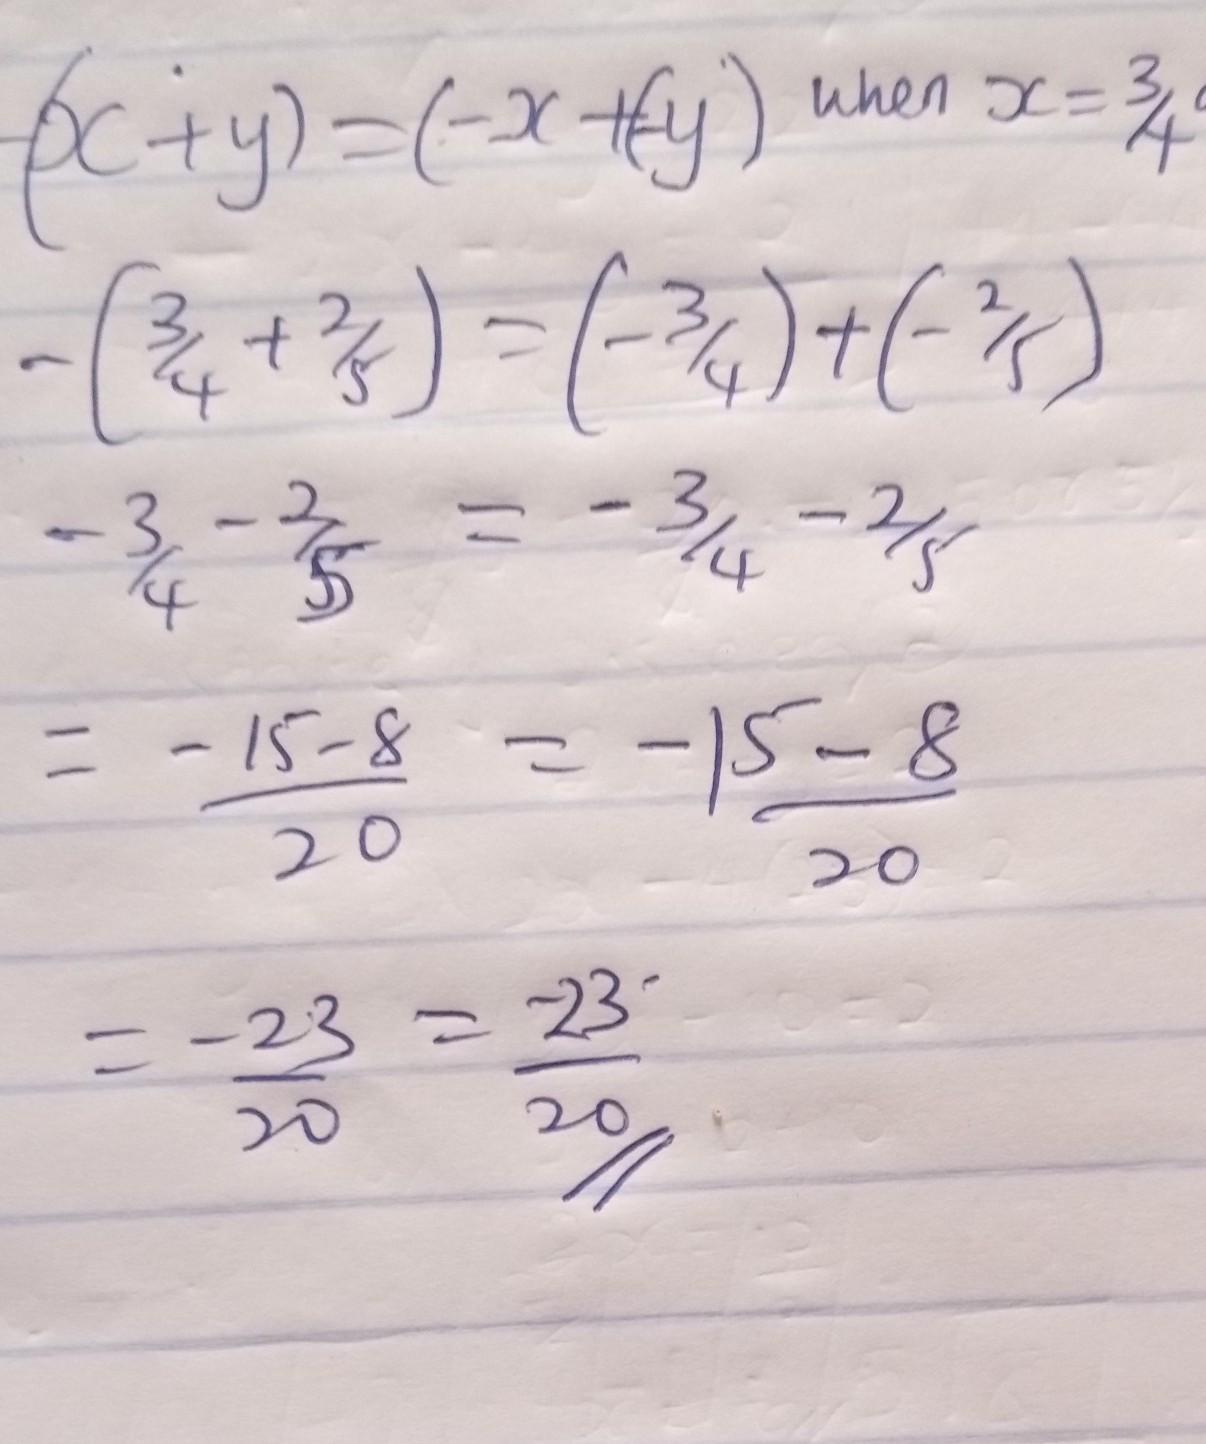 -(x + y) = (-x + (-y) when x = 3/4
-(3/4 + 2/5) = (-3/4) + (-2/5)
-3/4 - 2/5 = -3/4 - 2/5
= -15-8/20 = -15-8/20
= -23/20 = -23/20